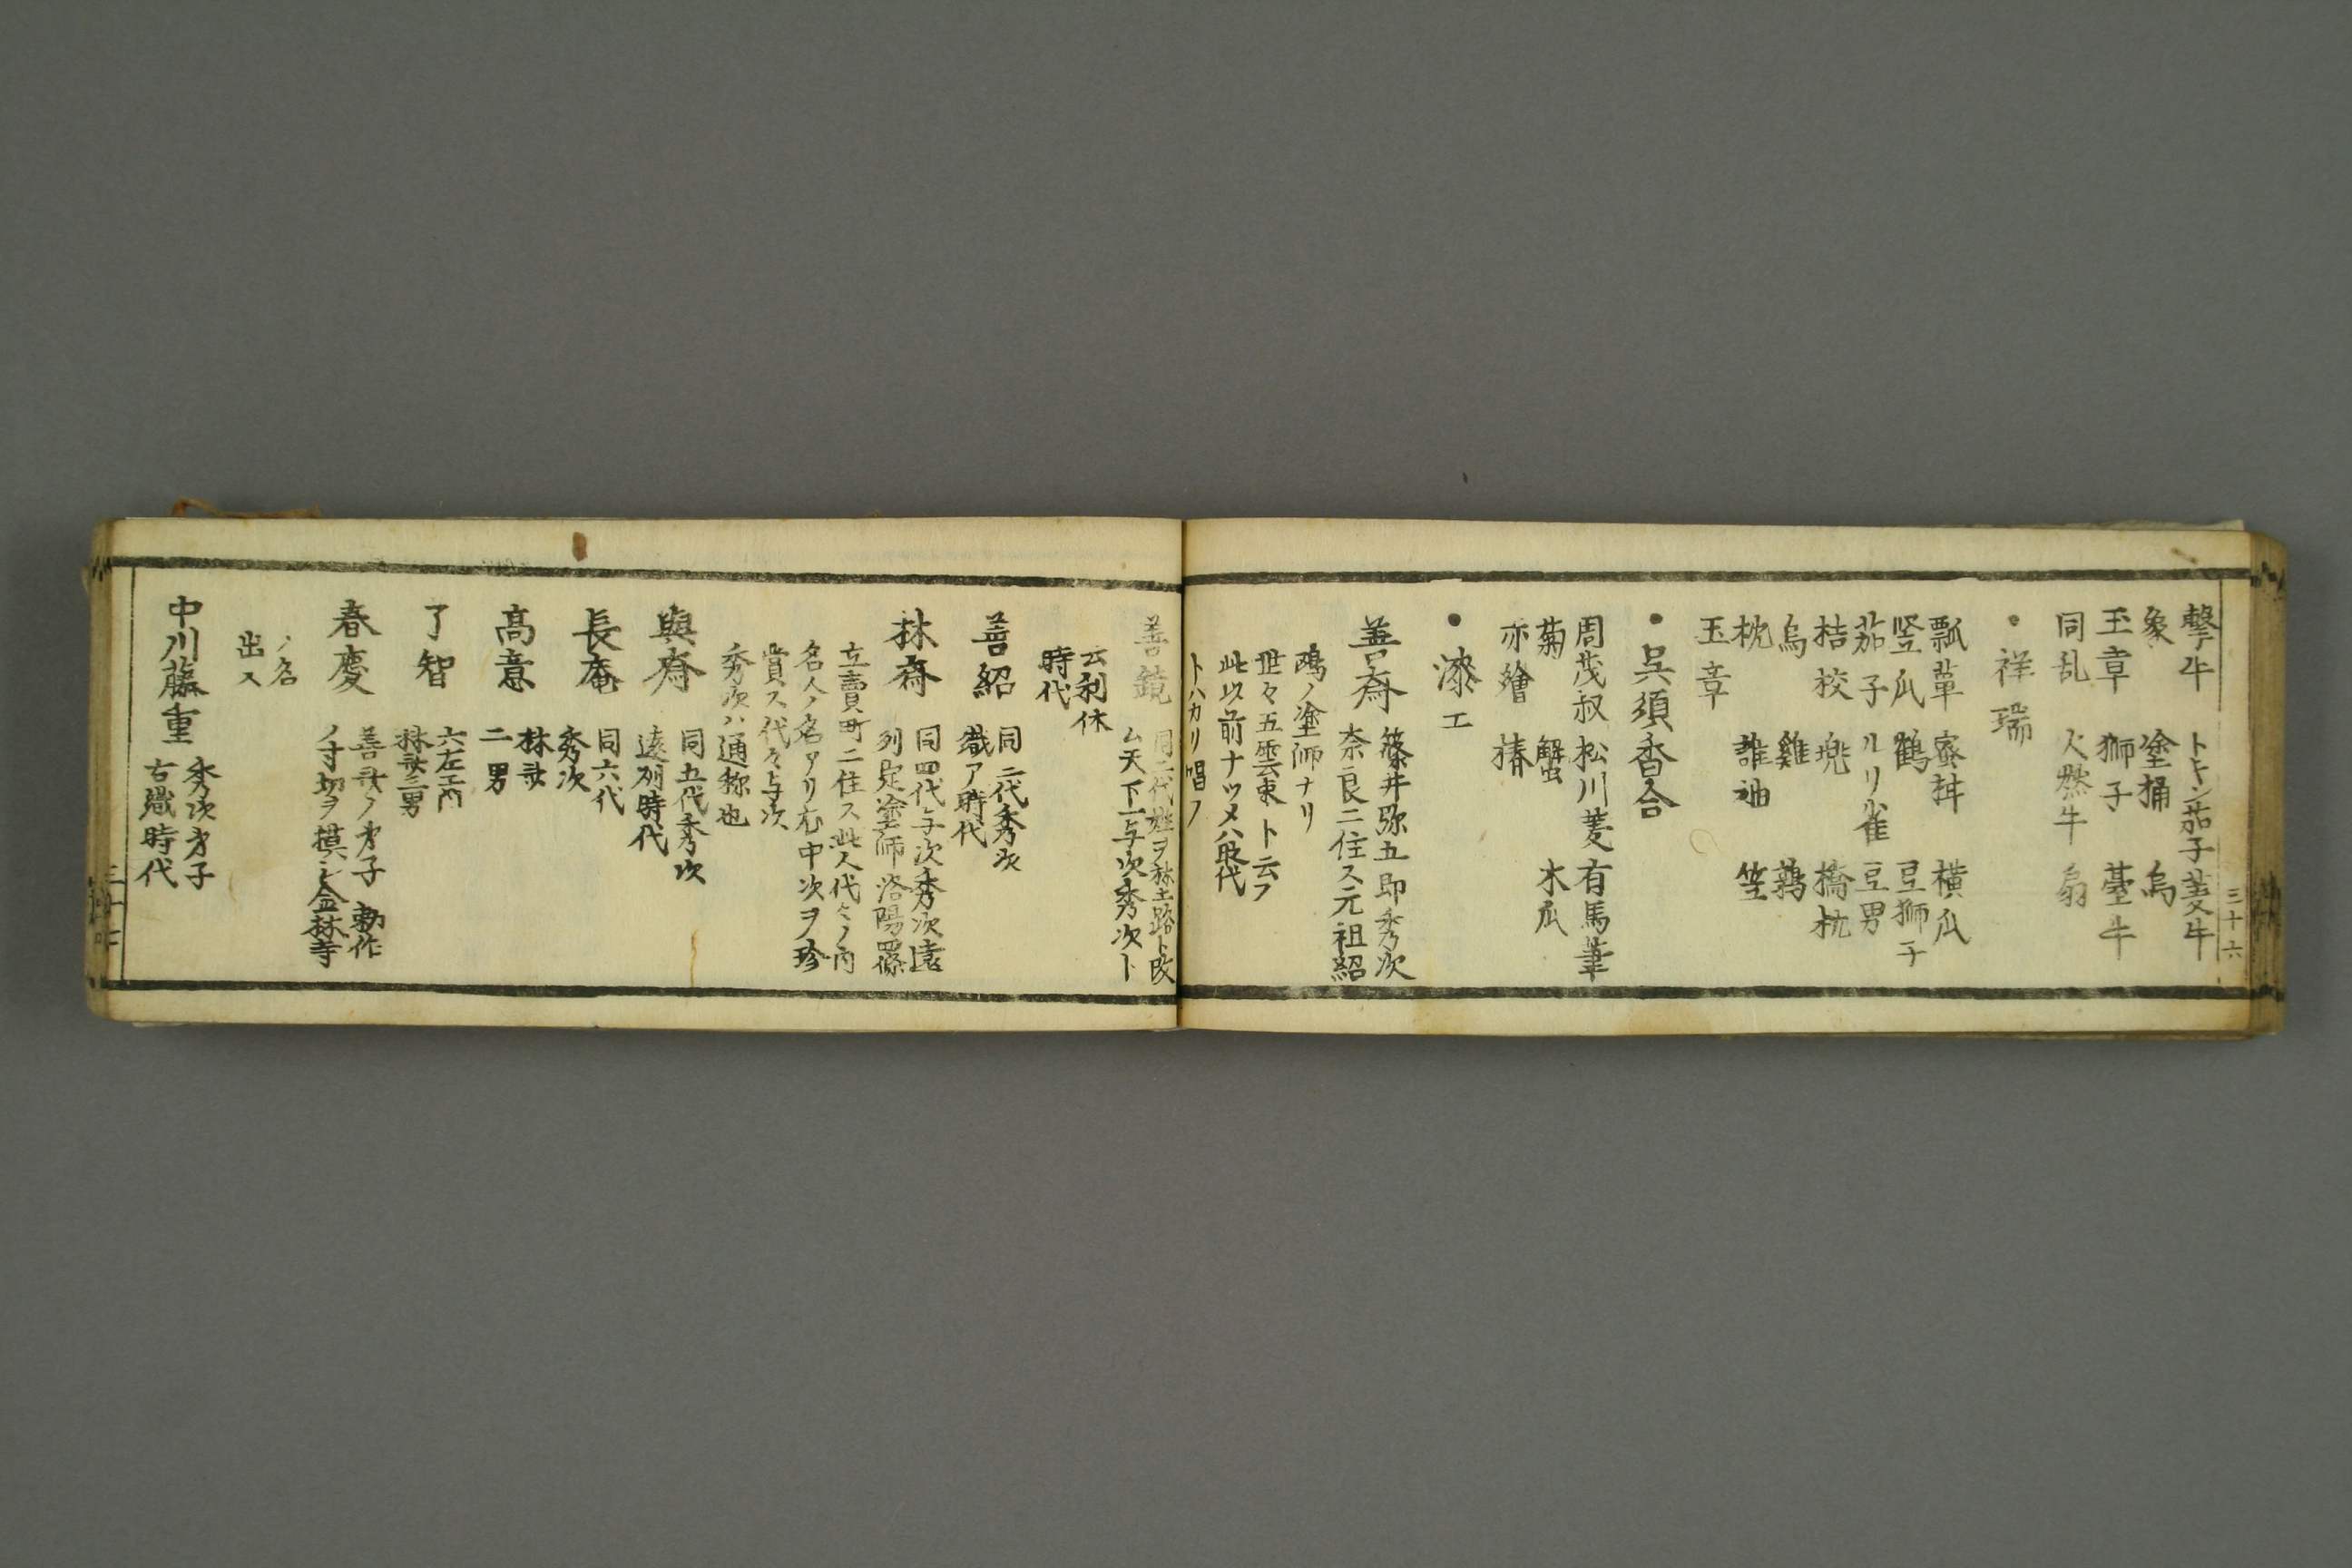 三十六
撃牛 トキン茄子 菱牛
象 塗桶 烏
玉章 獅子 臺牛
同乱 火燃牛 扇
・祥瑞
瓢箪 蜜柑 横瓜
竪瓜 鶴 豆獅子
茄子 ルリ雀 豆男
桔梗 兜 擣枕
烏 雞 鶉
枕 誰袖 笠
玉章
・呉須香合
周茂叔 松川菱 有馬筆
菊 蟹 木瓜
赤繪 椿
・漆工
善斎 篠井弥五郎秀次
奈良ニ住ス元祖紹
鴎ノ塗師ナリ
世々五雲東ト云フ
此以前ナツメハ
トハカリ唱フ
善鏡 同二代姓ヲ秣土路ト改
ム天下一与次秀次ト
云利休
時代
善紹 同三代秀次
織ア時代
秣斎 同四代与次秀次遠
列定塗師洛陽
立賣町ニ住ス此人代々ノ内
名人ノ名アリ 中次ヲ珍
賞ス代々与次
秀次ハ通称也
與斎 同五代秀次
遠列時代
長庵 同六代
秀次
高意 秣斎
二男
了智 六左エ門
秣斎三男
春慶 善斎ノ才子 勅作
ノ寸切ヲ摸シ金林寺
ノ名
出ス
中川藤重 秀次才子
古織時代